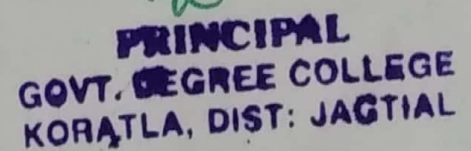 PRINCIPAL
GOVT. DEGREE COLLEGE
KORATLA, DIST: JAGTIAL